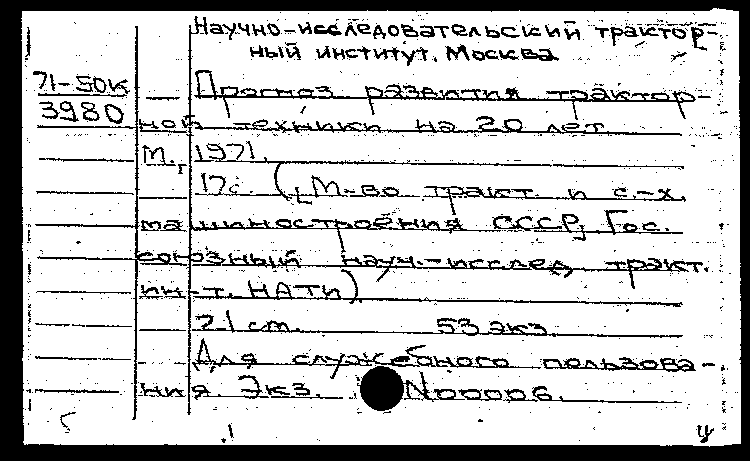 Научно-исследовательский трактор-
ный институт. Москва
71-50к
3980
Прогноз развития трактор-
ной техники на 20 лет
М., 1971.
17с. (М-во тракт. и с.-х.
машиностроения СССР, Гос.
союзный науч.-исслед. тракт.
ин-т. НАТИ)
21 cm. 53 экз.
Для служебного пользова-
ния. Экз. N00006.